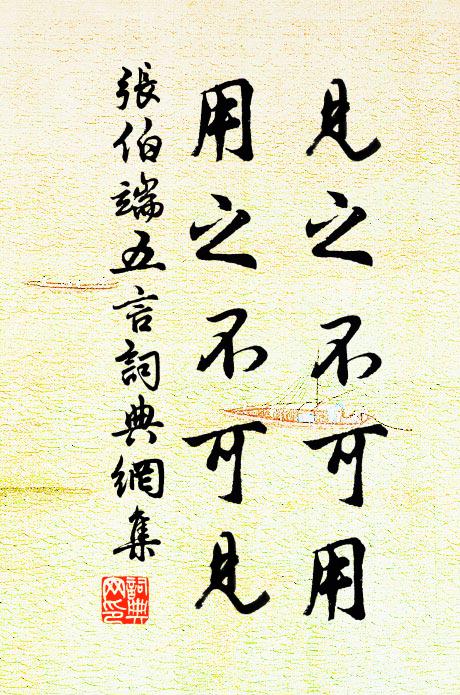 見之不可用
用之不可見
張伯端五言詞典網集
詞典網印